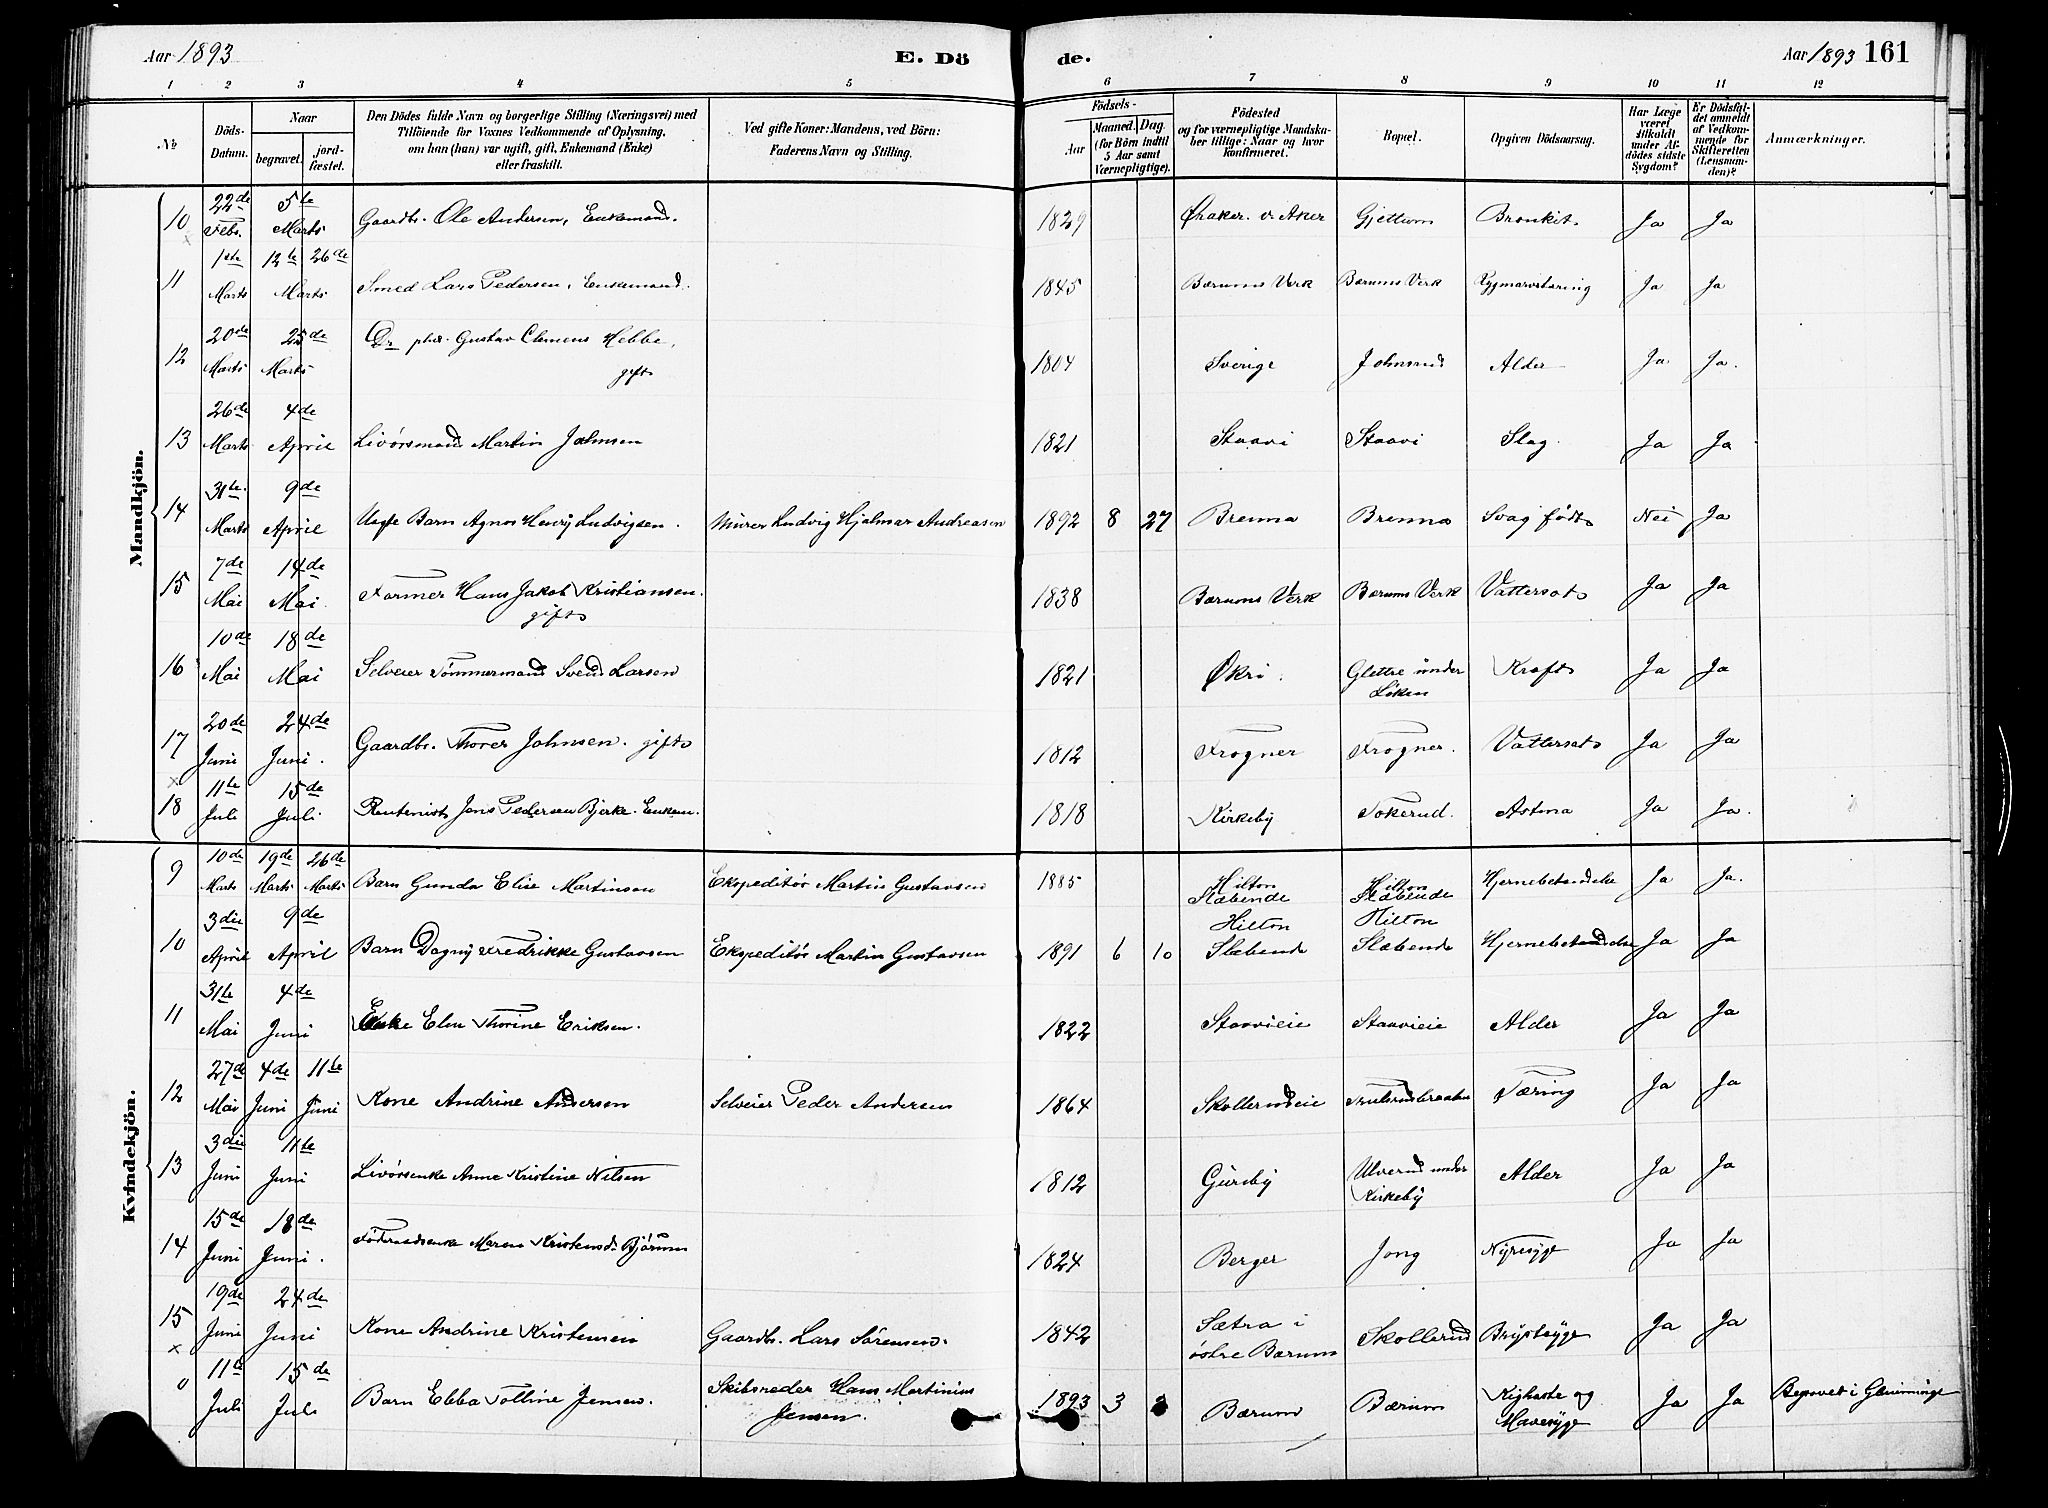 Aar 1893
E. Dö
de.
Aar 1893 161
1 2 3 4 5 6 7 8 9 10 11 12
No
Döds-Datum.
Naar
begravet.
jord-fæstet.
Den Dödes fulde Navn og borgerlige Stilling (Næringsvei) med
Tilföiende for Voxnes Vedkommende af Oplysning,
om han (hun) var ugift, gift, Enkemand (Enke)
eller fraskilt.
Ved gifte Koner: Mandens, ved Börn:
Faderens Navn og Stilling.
Födsels-
Aar
Maaned.
Dag.
(for Börn indtil
5 Aar samt
Værnepligtige).
Födested
og for værnepligtige Mandska-
ber tillige: Naar og hvor
konfirmeret.
Bopæl.
Opgiven Dödsaarsag.
Har Læge
været
tilkaldt
under Af-
dödes sidste
Sygdom?
Er Dödsfal-
det anmeldt
af Vedkom-
mende for
Skifteretten
(Lensman-
den)?
Anmærkninger.
Mandkjön.
10 22de Febr. 5te Marts Gaardbr. Ole Andersen, Enkemand. 1829 Øraker. v. Aker Gjettum Bronkit. Ja Ja
11 1ste Marts 12te 26de Marts Smed Lars Pedersen, Enkemand. 1845 Bærums Verk Bærums Verk Rygmarvstæring Ja Ja
12 20de Marts 25de Marts Dr phil. Gustav Clemens Hebbe,
gift 1804 Sverige Johnsrud Alder Ja Ja.
13 26de Marts 4de April Livörsmand Martin Johnsen 1821 Staavi Staavi Slag. Ja Ja
14 31te Marts 9de April Uegte Barn Agnos Henry Ludvigsen. Murer Ludvig Hjalmar Andreasen 1892 8 27 Brenna Brenna Svag født Nei Ja
15 7de Mai 14de Mai. Former Hans Jakob Kristiansen.
gift 1838 Bærums Verk Bærums Verk Vattersot Ja Ja
16 10de Mai 18de Mai Selveier Tömmermand Svend Larsen 1821 Økri. Glettre under
Löken Kræft Ja Ja
17 20de Juni 24de Juni. Gaardbr. Thorer Johnsen. gift 1812 Frogner Frogner. Vattersot Ja Ja
18 11te Juli 15de Juli Rentenist Jens Pedersen Bjerke. Enkem. 1818 Kirkeby Tokerud. Astma Ja Ja.
Kvindekjön.
9 10de Marts 19de Marts 26de Marts Barn Gunda Elise Martinsen Ekspeditör Martin Gustavsen 1885 Hilton
Slæbende Hilton
Slæbende Hjernebetændelse Ja Ja.
10 3die April 9de April Barn Dagny Fredrikke Gustavsen Ekspeditör Martin Gustavsen 1891 6 10 Hilton
Slæbende Hilton
Slæbende Hjernebetændelse Ja Ja
11 31te Mai 4de Juni Enke Elen Thorine Eriksen. 1822 Staavieie Staavieie Alder Ja Ja
12 27de Mai 4de Juni 11te Juni Kone Andrine Andersen Selveier Peder Andersen 1864 Skollerudeie Trulsrudbraaten Tæring Ja Ja
13 3die Juni 11te Juni Livörsenke Anne Kristine Nilsen 1812 Guriby Ulverud under
Kirkeby Alder Ja Ja
14 15de Juni 18de Juni. Föderaadsenke Maren Kristensd. Bjørum 1824 Berger Jong Nyresyge Ja Ja
15 19de Juni 24de Juni Kone Andrine Kristensen Gaardbr. Lars Sörensen. 1842 Sætra i
östre Bærum Skollerud Brystsyge Ja Ja
0 11te Juli 15de Juli Barn Ebba Tolline Jensen. Skibsreder Hans Martinius
Jensen. 1893 3 Bærum Bærum Kighoste og
Mavesyge Ja Ja Begravet i